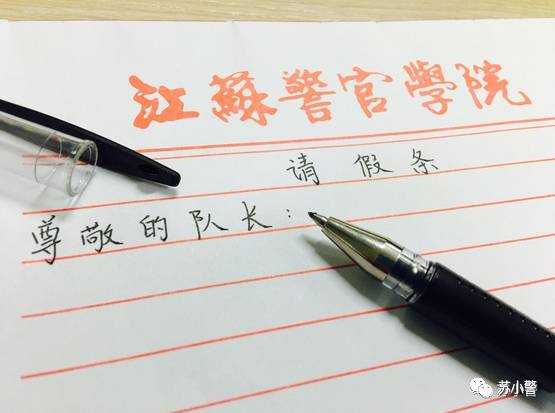 江蘇警官學院
请假条
尊敬的队长：
苏小警